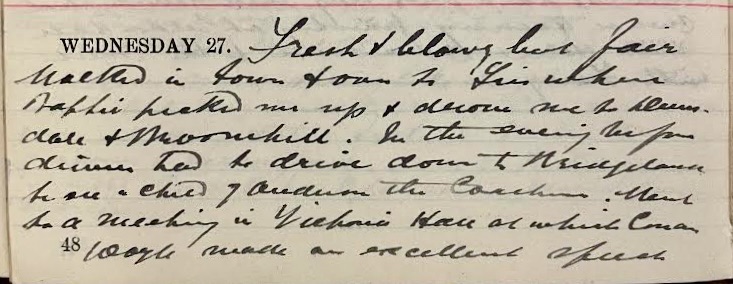 WEDNESDAY 27. Fresh & blowy but fair
Walked in town & out to where
picked me up & drove me to
dale & Broomhill. In the evening before
dinner had to drive down to
to see a child of Anderson the Coachman. Went
to a meeting in Victoria Hall at which Conan
48 Doyle made an excellent speech